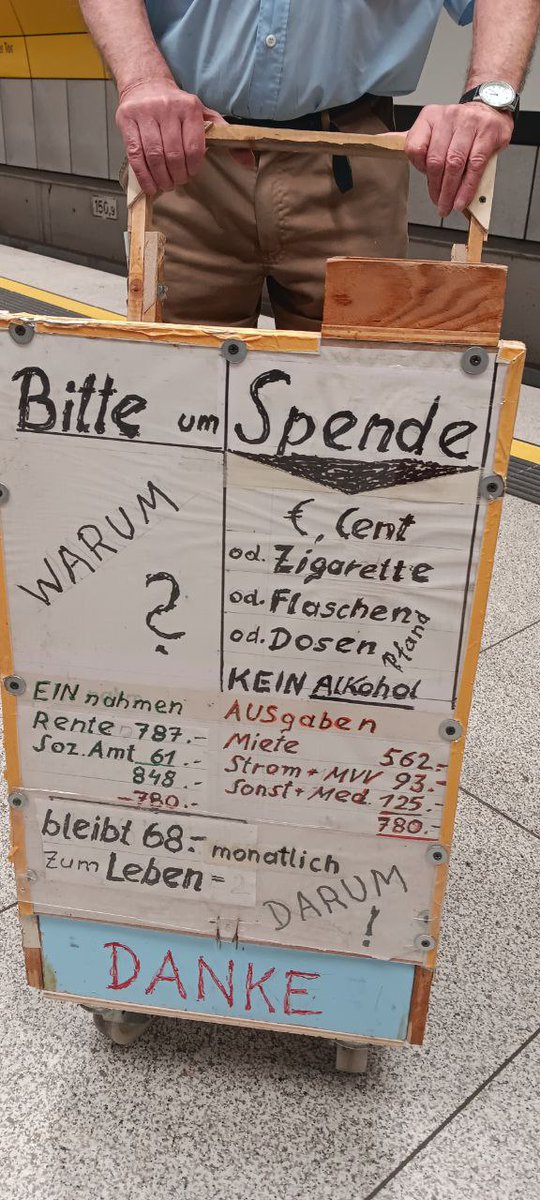 er Tor
150,9
Bitte um Spende
WARUM
?
€, Cent
od. Zigarette
od. Flaschen
od. Dosen Pfand
KEIN Alkohol
EINnahmen
Rente 787.-
Soz. Amt 61.-
848.-
-780.-
AUSgaben
Miete 562.-
Strom + MVV 93.-
Sonst + Med. 125.-
780.-
bleibt 68.- monatlich
zum Leben =
DARUM
!
DANKE